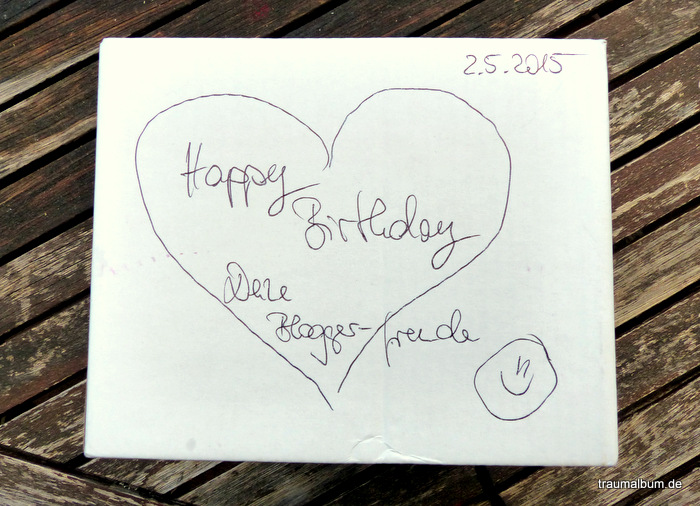 2.5.2015
Happy
Birthday
Deine
Blogger-freunde
traumalbum.de